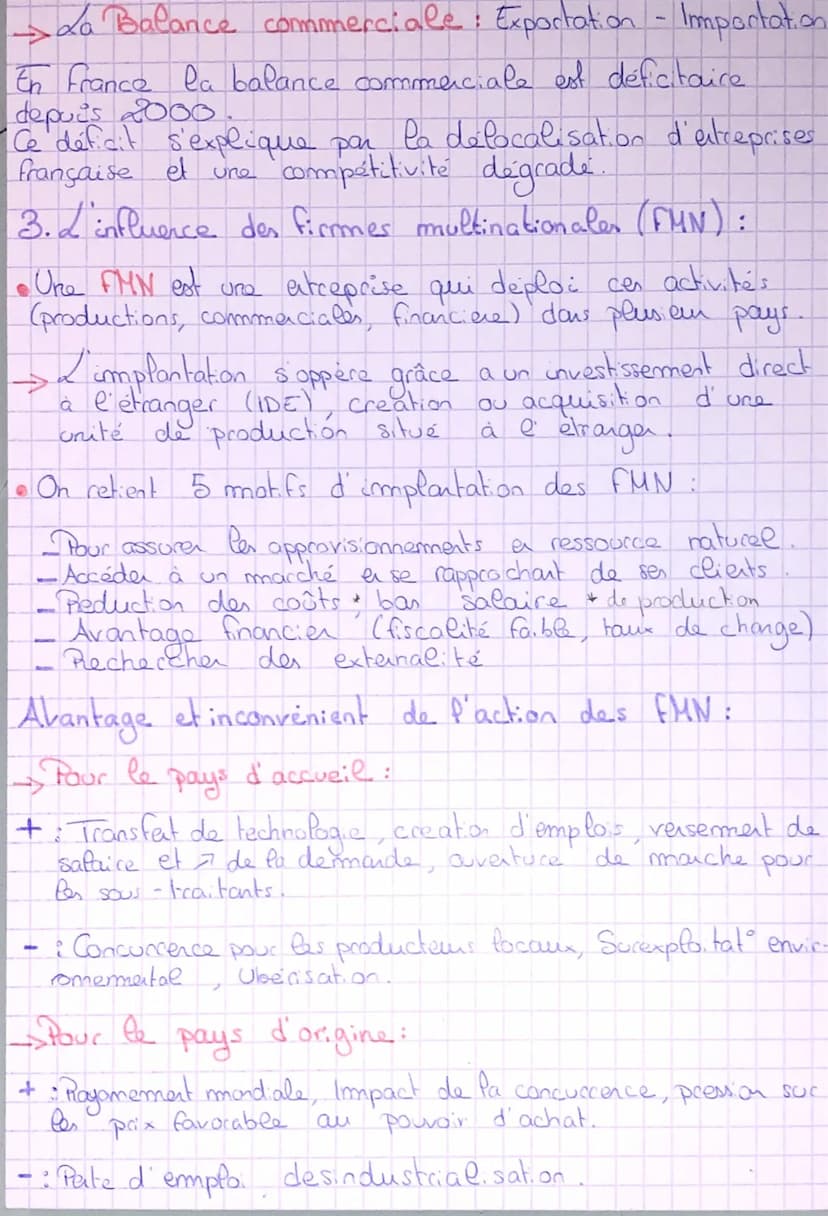 → La Balance commerciale : Exportation - Importation
En France la balance commerciale est déficitaire
depuis 2000.
Ce déficit s'explique par la délocalisation d'entreprises
française et une compétitivité dégradé.
3. L'influence des firmes multinationales (FMN) :
• Une FMN est une entreprise qui déploi ces activités
(productions, commerciales, financière) dans plusieur pays.
→ L'implantation s'oppère grâce a un investissement direct
à l'étranger (IDE), création ou acquisition d'une
unité de production situé à l'étranger.
• On retient 5 motifs d'implantation des FMN :
- Pour assurer les approvisionnements en ressource naturel.
- Accéder à un marché en se rapprochant de ses clients.
- Reduction des coûts : bas salaire + de production
- Avantage financier (fiscalité faible, taux de change)
- Rechercher des externalité
Avantage et inconvénient de l'action des FMN :
→ Pour le pays d'accueil :
+ : Transfert de technologie, création d'emplois, versement de
salaire et ↗ de la demande, ouverture de marche pour
les sous-traitants.
- : Concurrence pour les producteurs locaux, Surexploitat° envir-
onnemental, Ubérisation.
→ Pour le pays d'origine :
+ : Rayonnement mondiale, Impact de la concurrence, pression sur
les prix favorable au pouvoir d'achat.
- : Perte d'emploi, desindustrialisation.